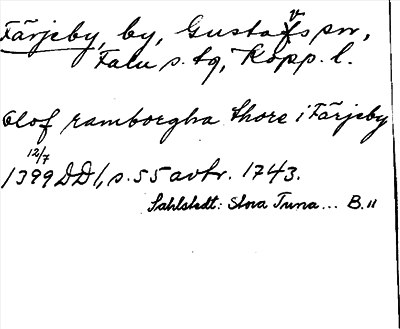 Färjeby, by, Gustafs sn,
Falu s. tg, Kopp. l.
Olof ramborgha thore i Färjeby
12/7
1399 DD1, s. 55 avtr. 1743.
Sahlstedt: Stora Tuna... B. 11